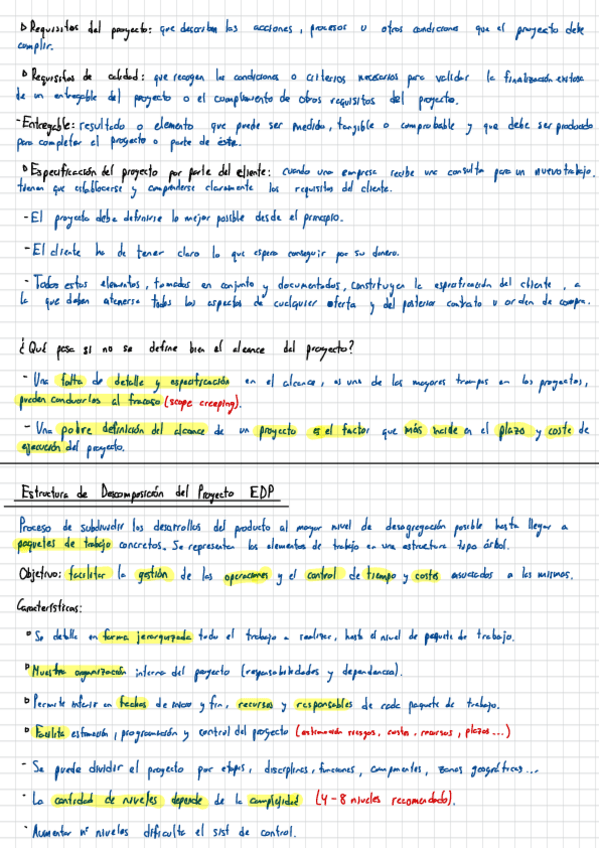 ▷ Requisitos del proyecto: que describen las acciones, procesos u otras condiciones que el proyecto debe
cumplir.
▷ Requisitos de calidad: que recogen las condiciones o criterios necesarios para validar la finalización exitosa
de un entregable del proyecto o el cumplimiento de otros requisitos del proyecto.
- Entregable: resultado o elemento que puede ser medido, tangible o comprobable y que debe ser producido
para completar el proyecto o parte de éste.
▷ Especificación del proyecto por parte del cliente: cuando una empresa recibe una consulta para un nuevo trabajo,
tienen que establecerse y comprenderse claramente los requisitos del cliente.
- El proyecto debe definirse lo mejor posible desde el principio.
- El cliente ha de tener claro lo que espera conseguir por su dinero.
- Todos estos elementos, tomados en conjunto y documentados, constituyen la especificación del cliente, a
la que deben atenerse todos los aspectos de cualquier oferta y del posterior contrato u orden de compra.
¿Qué pasa si no se define bien el alcance del proyecto?
- Una falta de detalle y especificación en el alcance, es una de las mayores trampas en los proyectos,
pueden conducirlos al fracaso (scope creeping).
- Una pobre definición del alcance de un proyecto es el factor que más incide en el plazo y coste de
ejecución del proyecto.
Estructura de Descomposición del Proyecto EDP
Proceso de subdividir los desarrollos del producto al mayor nivel de desagregación posible hasta llegar a
paquetes de trabajo concretos. Se representan los elementos de trabajo en una estructura tipo árbol.
Objetivo: facilitar la gestión de las operaciones y el control de tiempo y costes asociados a las mismas.
Características:
▷ Se detalla en forma jerarquizada todo el trabajo a realizar, hasta el nivel de paquete de trabajo.
▷ Muestra organización interna del proyecto (responsabilidades y dependencia).
▷ Permite inferir en fechas de inicio y fin, recursos y responsables de cada paquete de trabajo.
▷ Facilita estimación, programación y control del proyecto (estimación riesgos, costes, recursos, plazos...)
- Se puede dividir el proyecto por etapas, disciplinas, funciones, componentes, zonas geográficas...
- La cantidad de niveles depende de la complejidad (4-8 niveles recomendado).
- Aumentar nº niveles dificulta el sist de control.